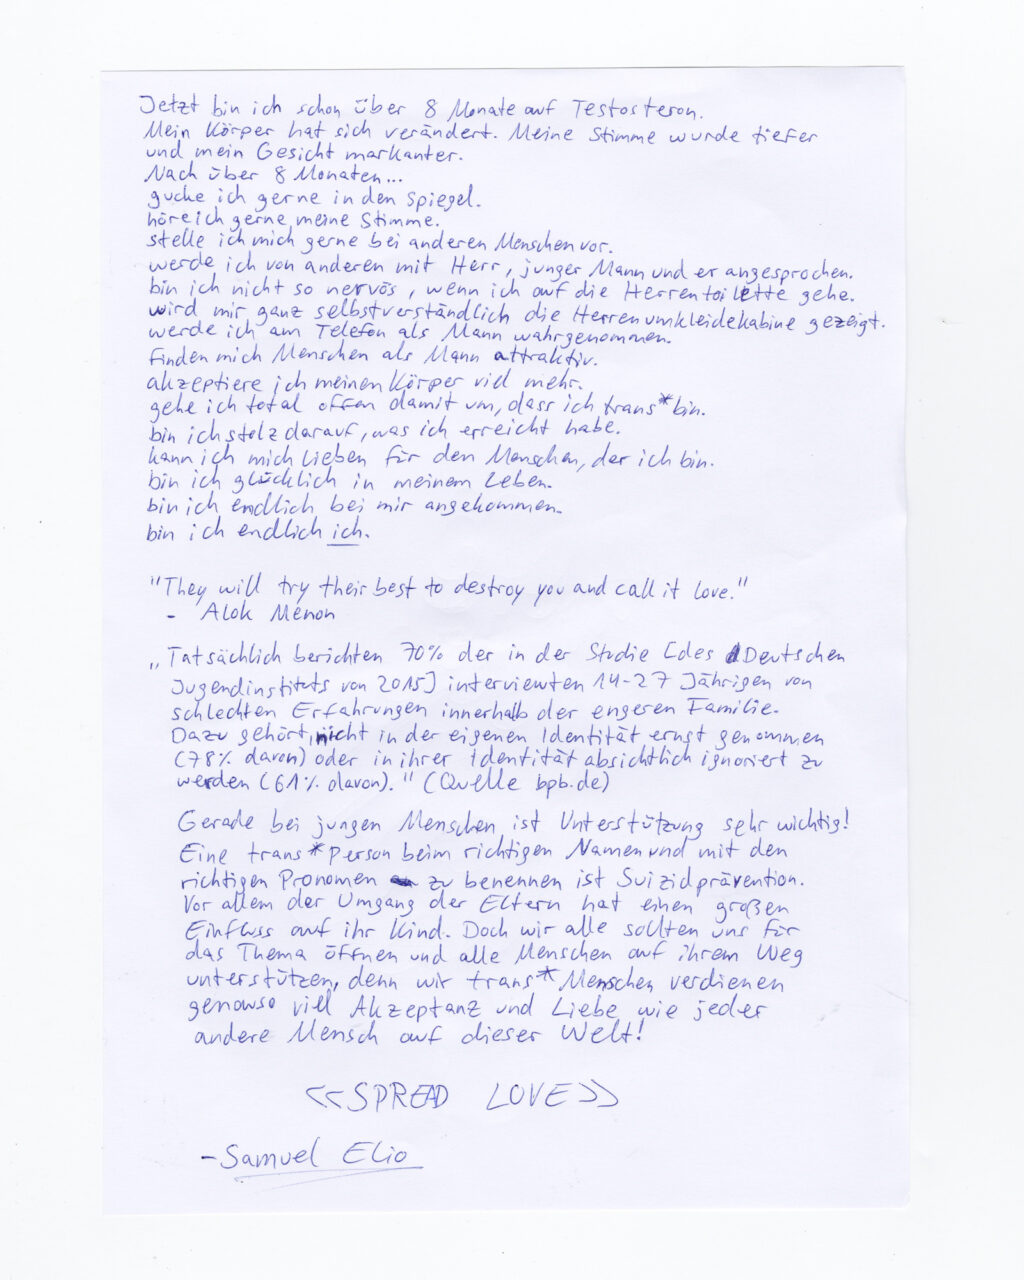 Jetzt bin ich schon über 8 Monate auf Testosteron.
Mein Körper hat sich verändert. Meine Stimme wurde tiefer
und mein Gesicht markanter.
Nach über 8 Monaten...
gucke ich gerne in den Spiegel.
höre ich gerne meine Stimme.
stelle ich mich gerne bei anderen Menschen vor.
werde ich von anderen mit Herr, junger Mann und er angesprochen.
bin ich nicht so nervös, wenn ich auf die Herrentoilette gehe.
wird mir ganz selbstverständlich die Herrenumkleidekabine gezeigt.
werde ich am Telefon als Mann wahrgenommen.
finden mich Menschen als Mann attraktiv.
akzeptiere ich meinen Körper viel mehr.
gehe ich total offen damit um, dass ich trans* bin.
bin ich stolz darauf, was ich erreicht habe.
kann ich mich lieben für den Menschen, der ich bin.
bin ich glücklich in meinem Leben.
bin ich endlich bei mir angekommen.
bin ich endlich ich.
"They will try their best to destroy you and call it love."
- Alok Menon
„Tatsächlich berichten 70% der in der Studie [des Deutschen
Jugendinstituts von 2015] interviewten 14-27 Jährigen von
schlechten Erfahrungen innerhalb der engeren Familie.
Dazu gehört, nicht in der eigenen Identität ernst genommen
(78% davon) oder in ihrer Identität absichtlich ignoriert zu
werden (61% davon)." (Quelle bpb.de)
Gerade bei jungen Menschen ist Unterstützung sehr wichtig!
Eine trans* Person beim richtigen Namen und mit den
richtigen Pronomen zu benennen ist Suizidprävention.
Vor allem der Umgang der Eltern hat einen großen
Einfluss auf ihr Kind. Doch wir alle sollten uns für
das Thema öffnen und alle Menschen auf ihrem Weg
unterstützen, denn wir trans* Menschen verdienen
genauso viel Akzeptanz und Liebe wie jeder
andere Mensch auf dieser Welt!
<<SPREAD LOVE>>
- Samuel Elio